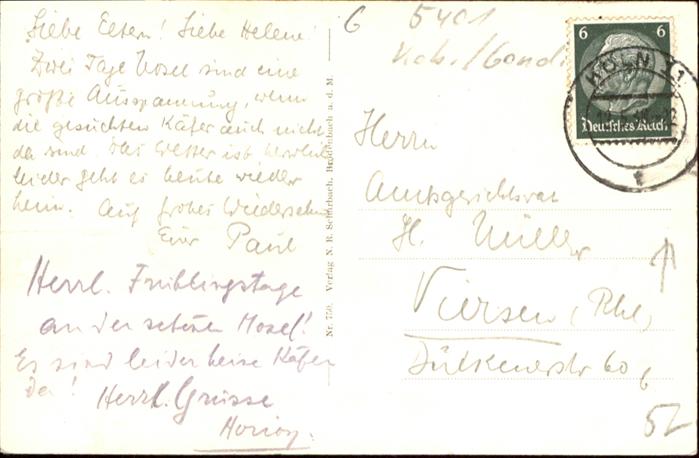 Liebe Eltern! Liebe Helene!
Zwei Tage Mosel sind eine
große Ausspannung, wenn
die gesuchten Käfer auch nicht
da sind. Das Wetter ist herrlich
leider geht es heute wieder
heim. Auf frohes Wiedersehn
Euer Paul
Herrl. Frühlingstage
an der schönen Mosel!
Es sind leider keine Käfer
da! Herzl. Grüsse
Nr. 759. Verlag N. R. Schürbach, Brodenbach a. d. M.
6 5401
6 6
Deutsches Reich
KÖLN 11
Herrn
Amtsgerichtsrat
H. Müller
Viersen (Rhl)
Dülkenerstr 60
52